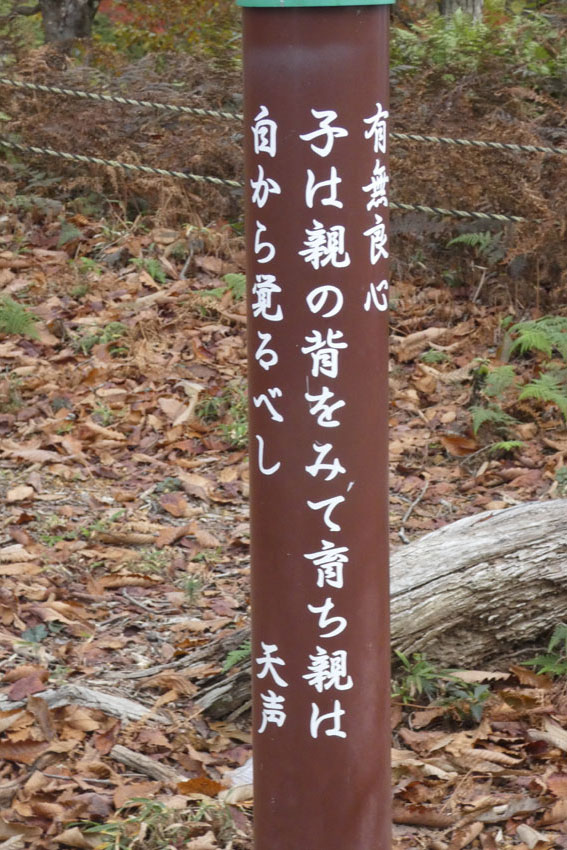 有無良心
子は親の背をみて育ち親は
自から覚るべし
天声